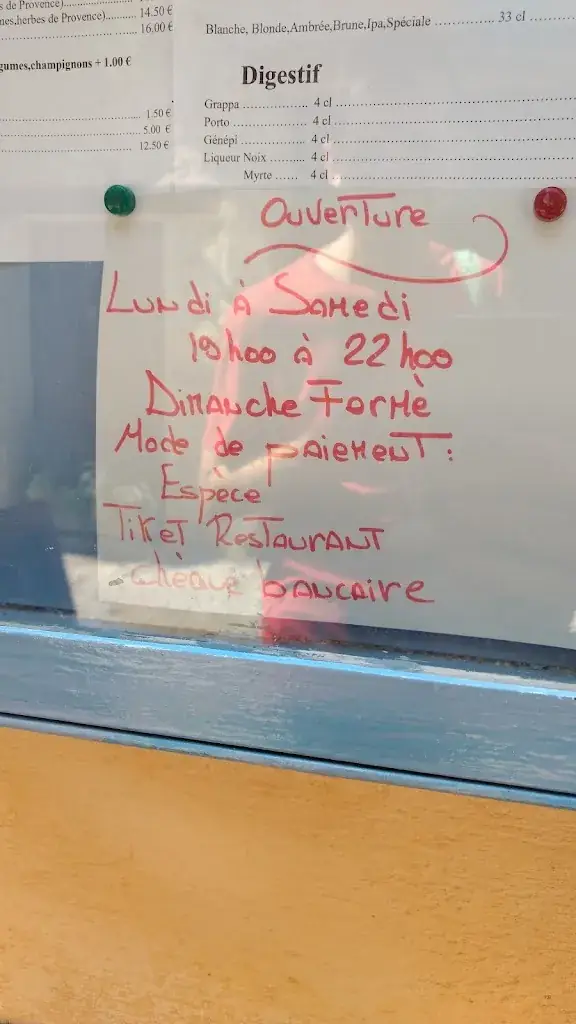 s de Provence)
mes,herbes de Provence).......... 14.50 €
16.00 €
gumes,champignons + 1.00 €
1.50 €
5.00 €
12.50 €
Blanche, Blonde,Ambrée,Brune,Ipa,Spéciale ............... 33 cl
Digestif
Grappa ................ 4 cl
Porto .................. 4 cl
Génépi ................ 4 cl
Liqueur Noix ......... 4 cl
Myrte ...... 4 cl
Ouverture
Lundi à Samedi
19h00 à 22h00
Dimanche Formè
Mode de paiement :
Espèce
Tiket Restaurant
chèque bancaire